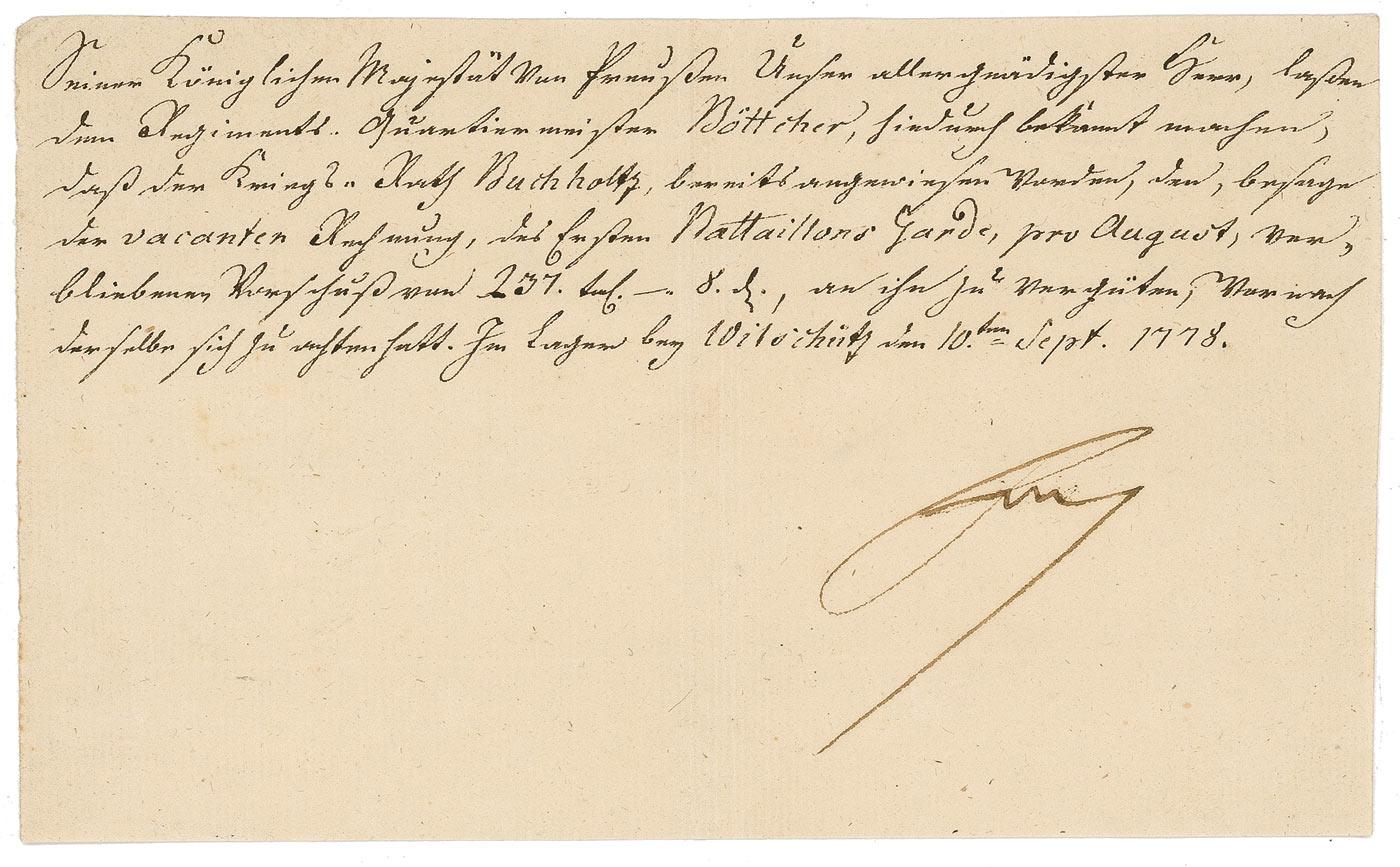 Seiner Königlichen Majestät von Preußen Unser allergnädigster Herr, laßen
dem Regiments-Quartiermeister Böttcher, hiedurch bekannt machen,
daß der Kriegs-Rath Buchholtz, bereits angewiesen worden, den, besage
der vacanten Rechnung, des Ersten Battaillons Garde, pro August, ver-
bliebenen Vorschuß von 237. tal. —. 8. d., an ihn zu vergüten; Wornach
derselbe sich zu achten hatt. Im Lager bey Wilschütz den 10.ten Sept. 1778.